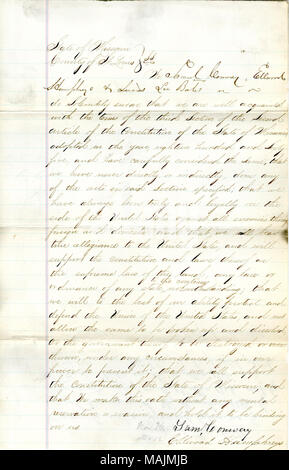 State of Missouri
County of St Louis } SS
We Saml Conway, Ellwood
Humphreys & Lewis
do solemnly swear that we are well acquainted
with the terms of the third Section of the Second
article of the Constitution of the State of Missouri
adopted in the year eighteen hundred and sixty
five and have carefully considered the same, that
we have never directly or indirectly done any
of the acts in said Section specified, that we
have always been truly and loyally on the
side of the United States against all enemies thereof
foreign and domestic that we will bear
true allegiance to the United States and will
support the constitution and laws thereof as
the supreme law of the land, any law or
ordinance of any State to the contrary notwithstanding, that
we will to the best of our ability protect and
defend the Union of the United States and not
allow the same to be broken up and dissolved
or the government thereof to be destroyed or over
thrown, under any circumstances, if in our
power to prevent it; that we will support
the Constitution of the State of Missouri, and
that we make this oath without any mental
reservation or evasion, and hold it to be binding
on us
Saml Conway
Ellwood Humphreys
alamy
Image ID: MAJMJB
www.alamy.com